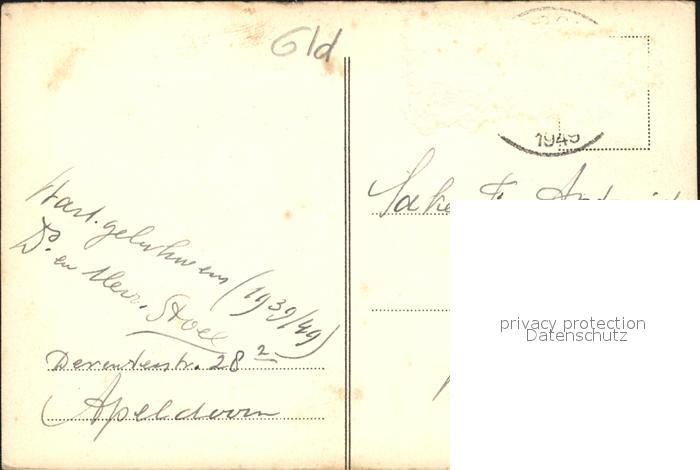 Gld
1949
Hart. gelukwens (1939/49)
Ds. en Mevr. Stoel
Deventerstr. 28 2
Apeldoorn
Sake
privacy protection
Datenschutz